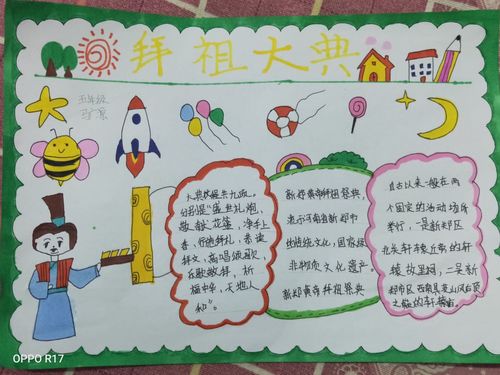 拜祖大典
五年级
大典仪程共九项。
分别是"盛世礼炮、
敬献花篮、净手上
香、行施拜礼、恭读
拜文、高唱颂歌、
乐舞敬拜、祈
福中华、天地人
和"。
新郑黄帝拜祖祭典，
是河南省新郑市
传统文化，国家级
非物质文化遗产。
新郑黄帝拜祖祭典
自古以来一般在两
个固定的活动场所
举行，一是新郑区
北关轩辕丘前的轩
辕故里祠，二是新
郑市区西南具茨山风后顶
之巅的轩辕庙
OPPO R17